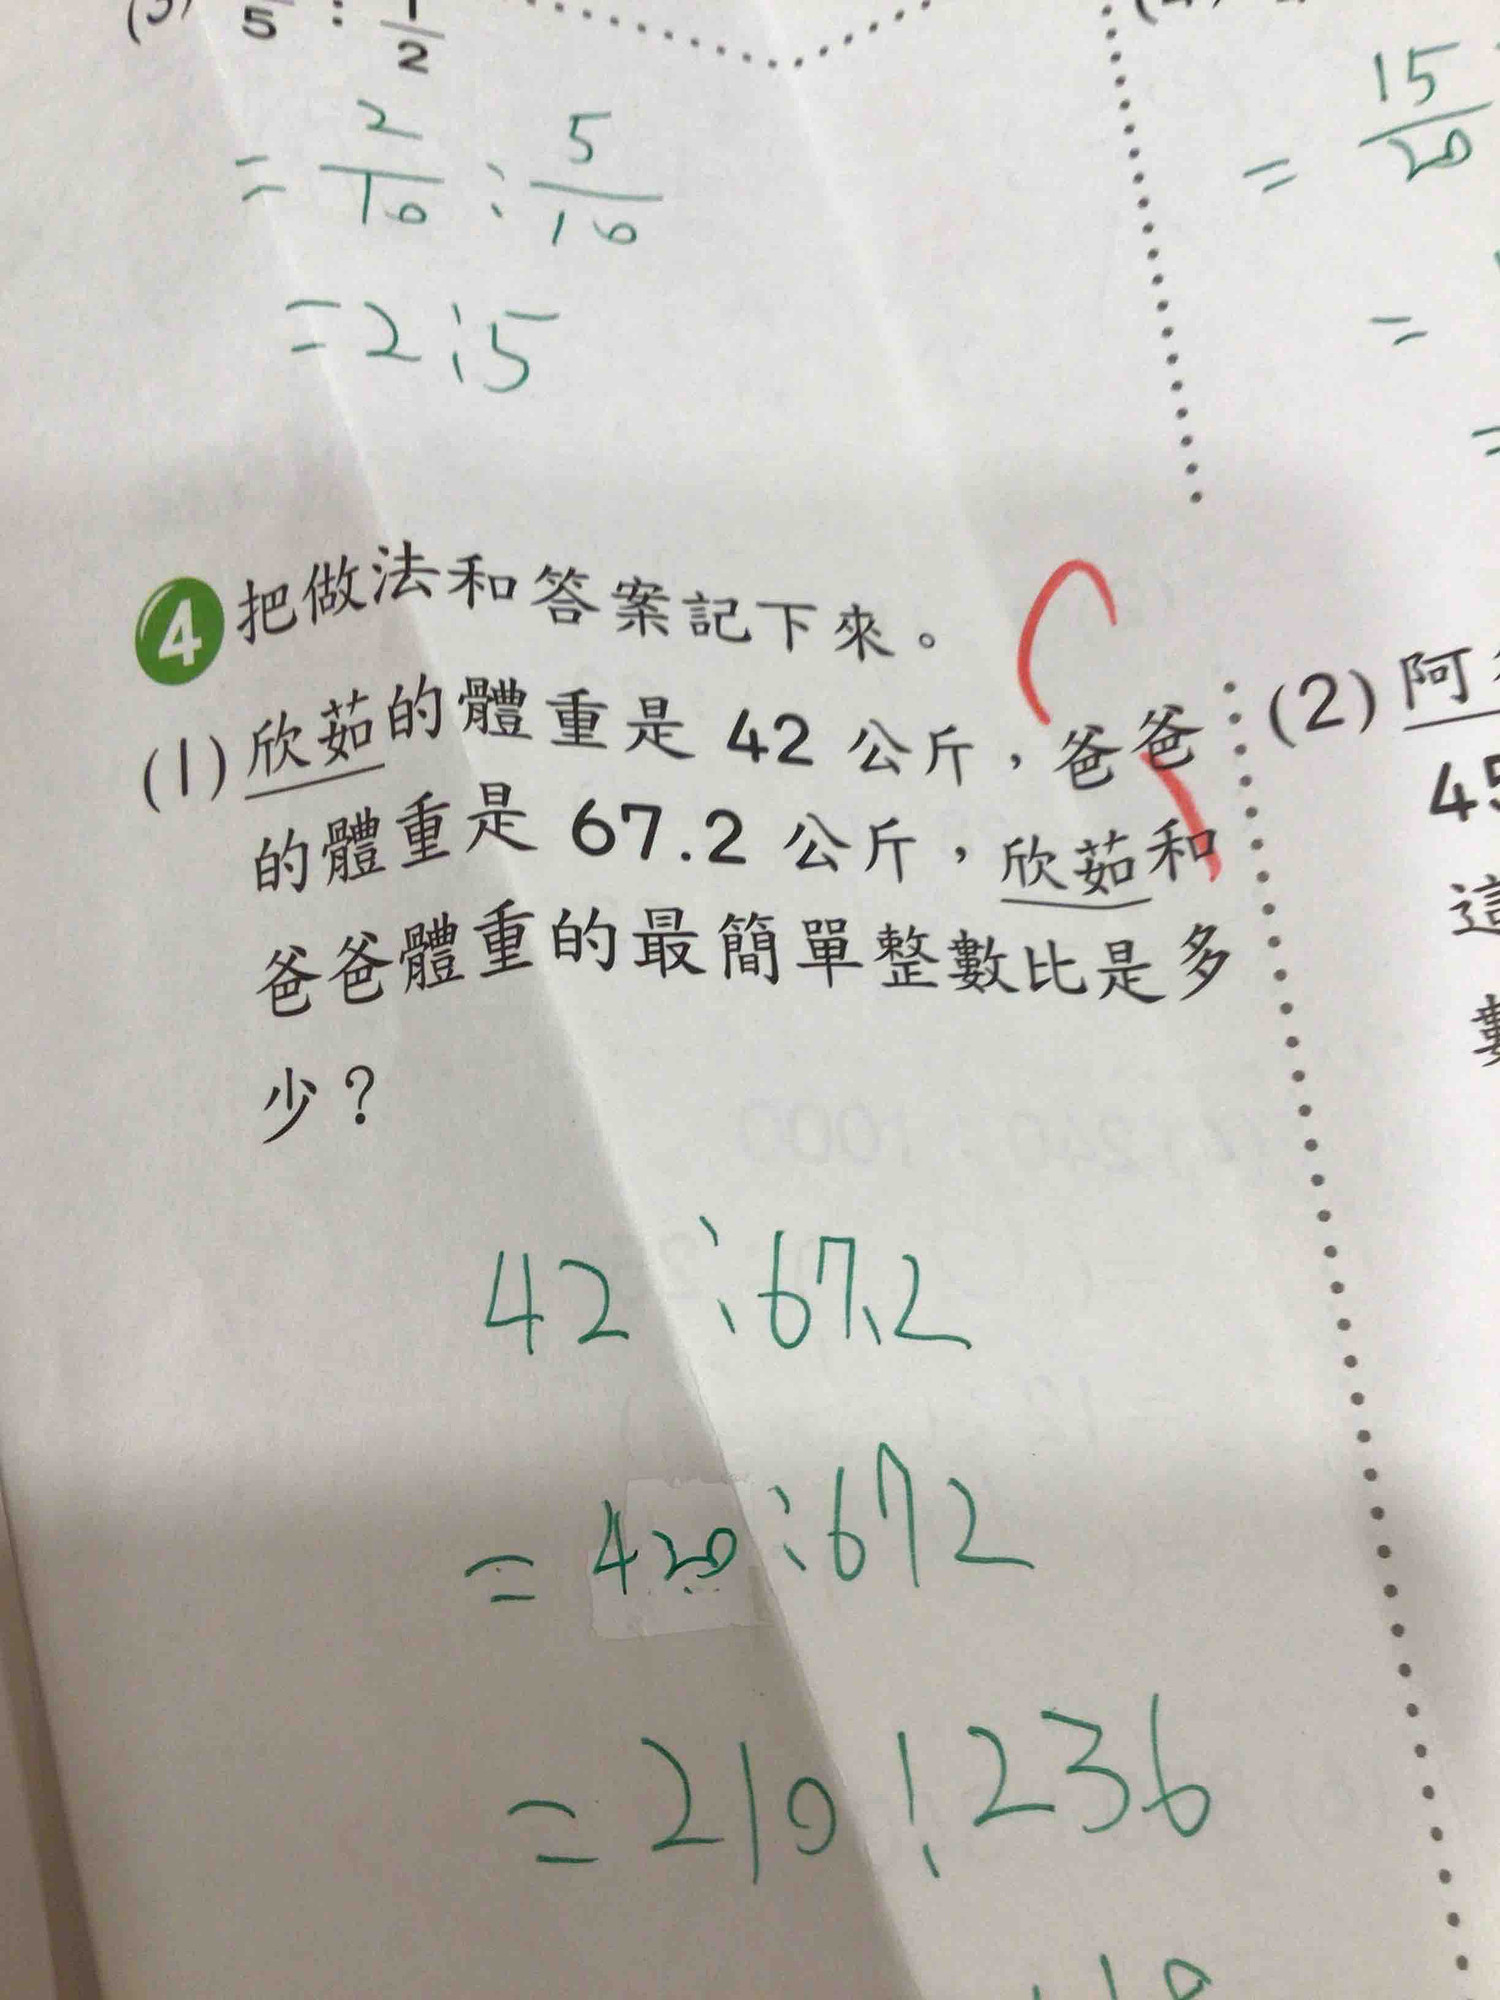 5 : 1/2
= 2/10 : 5/10
= 2:5
15/20
=
=
4 把做法和答案記下來。
(1) 欣茹的體重是 42 公斤，爸爸
的體重是 67.2 公斤，欣茹和
爸爸體重的最簡單整數比是多
少？
42:67.2
= 420:672
= 210:236
(2) 阿
45
這
數